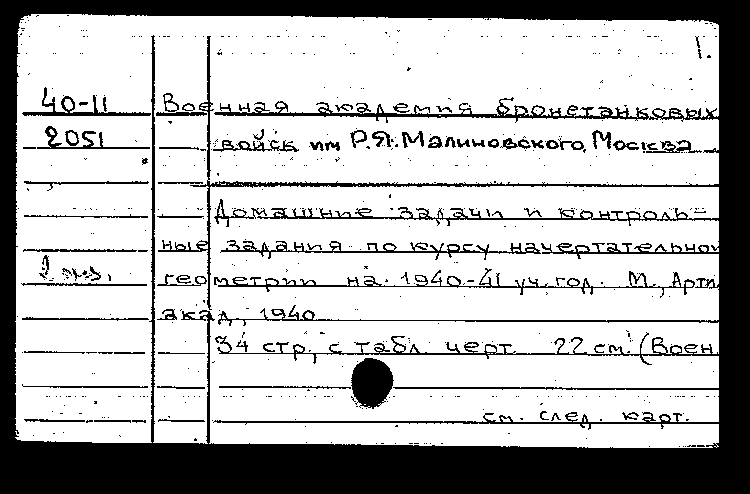 1.
40-11 Военная академия бронетанковых
2051 войск им Р.Я.Малиновского, Москва
Домашние задачи и контроль-
ные задания по курсу начертательной
2 экз. геометрии на 1940-41 уч. год. М., Арти
акад., 1940
34 стр., с табл. черт 22 см. (Воен.
см. след. карт.